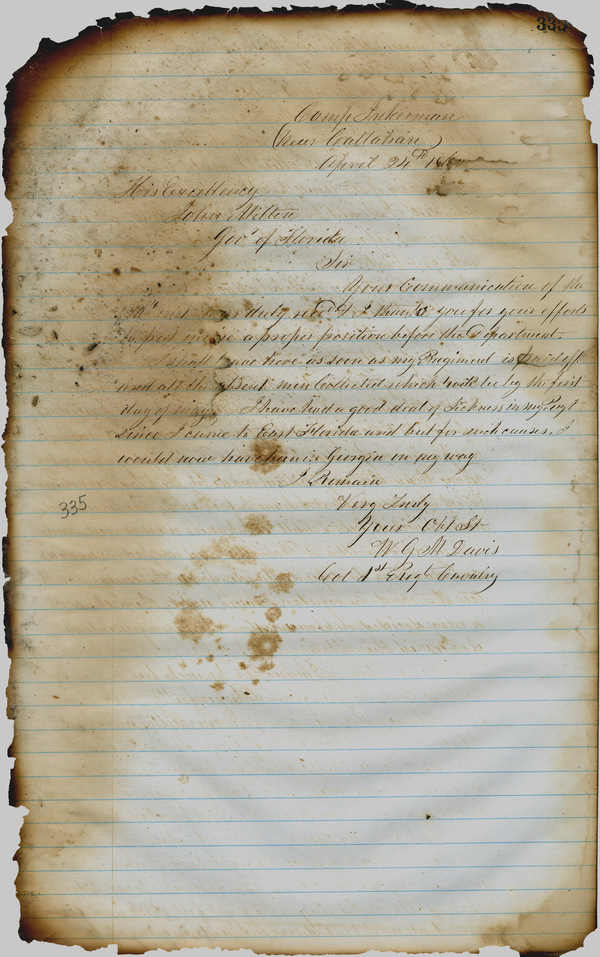 335
Camp Inkerman
(Near Callahan)
April 24th 186
His Excellency
John Milton
Gov' of Florida
Sir
Your Communication of the
inst was duly rec'd & I thank you for your efforts
to put me in a proper position before the Department.
I shall move there as soon as my Regiment is
and all the absent men Collected which will be by the first
day of May. I have had a good deal of Sickness in my Regt
since I came to East Florida and but for such causes, I
would now have been in Georgia on my way
I Remain
Very Truly
Your Obt St
W G M Davis
Col 1st Regt Cavalry
335